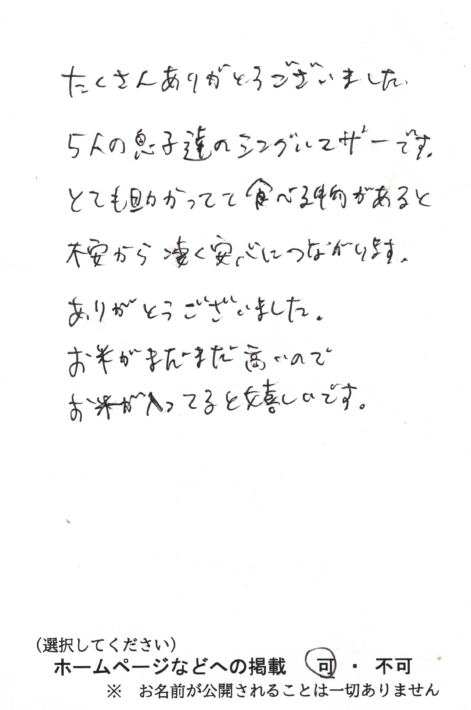 たくさんありがとうございました。
5人の息子達のシングルマザーです。
とても助かってて食べる物があると
不安から凄く安心につながります。
ありがとうございました。
お米がまだまだ高いので
お米が入ってると嬉しいです。
(選択してください)
ホームページなどへの掲載 可 ・ 不可
※ お名前が公開されることは一切ありません